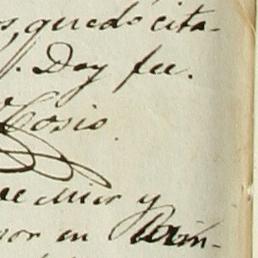 s, quedó cita-
. Doy fee.
Cosio.
de Mier y
por en